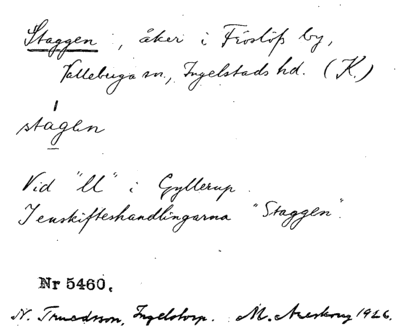 Staggen, åker i Fröslöfs by,
Valleberga sn., Ingelstads hd. (K.)
stagen
Vid "U" i Gyllerup.
I enskifteshandlingarna "Staggen".
Nr 5460.
N. Truedsson, Ingelstorp. M. Areskoug 1926.